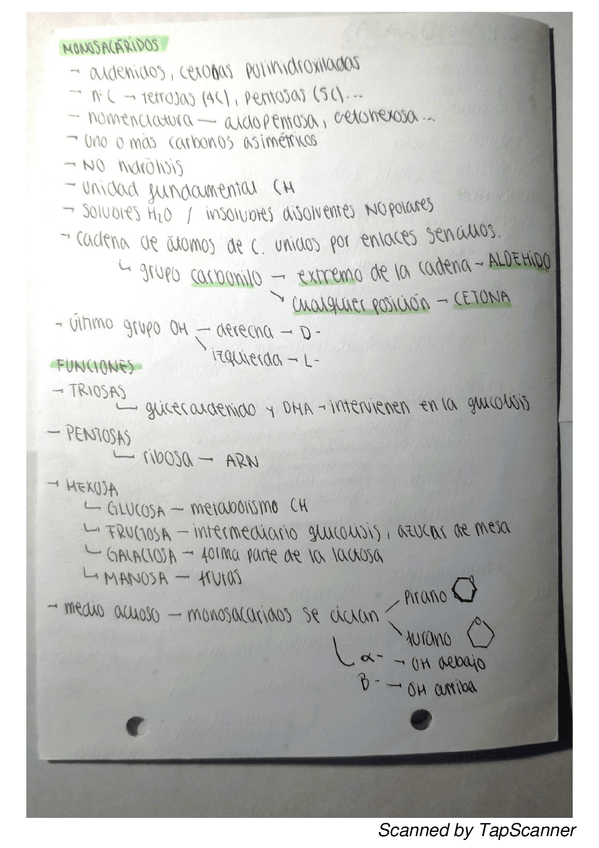 MONOSACÁRIDOS
→ aldehidos, cetonas polihidroxiladas
→ nºC → tetrosas (4C), pentosas (5C)...
→ nomenclatura — aldopentosa, cetohexosa...
→ Uno o más carbonos asimétricos
→ NO hidrólisis
→ unidad fundamental CH
→ solubles H2O / insolubles disolventes NO polares
→ cadena de átomos de C. unidos por enlaces sencillos.
↳ grupo carbonilo → extremo de la cadena → ALDEHÍDO
↘ cualquier posición → CETONA
→ último grupo OH — derecha → D-
↘ izquierda → L-
FUNCIONES
→ TRIOSAS
↳ gliceraldehido y DHA → intervienen en la glucolisis
→ PENTOSAS
↳ ribosa → ARN
→ HEXOSA
↳ GLUCOSA — metabolismo CH
↳ FRUCTOSA — intermediario glucolisis, azucar de mesa
↳ GALACTOSA → forma parte de la lactosa
↳ MANOSA — frutas
→ medio acuoso — monosacaridos se ciclan
Pirano
furano
α- → OH debajo
B- → OH arriba
Scanned by TapScanner